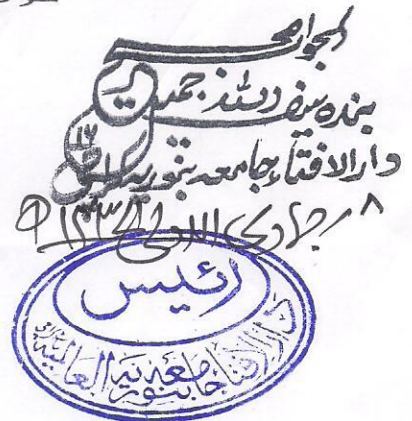 الجواب صحیح
بندہ سیف اللہ جمیل
دار الافتاء جامعہ بنوریہ
۸ جمادی الاولی ۱۴۳۳ھ
رئیس
دار الافتاء جامعہ بنوریہ العالمیہ